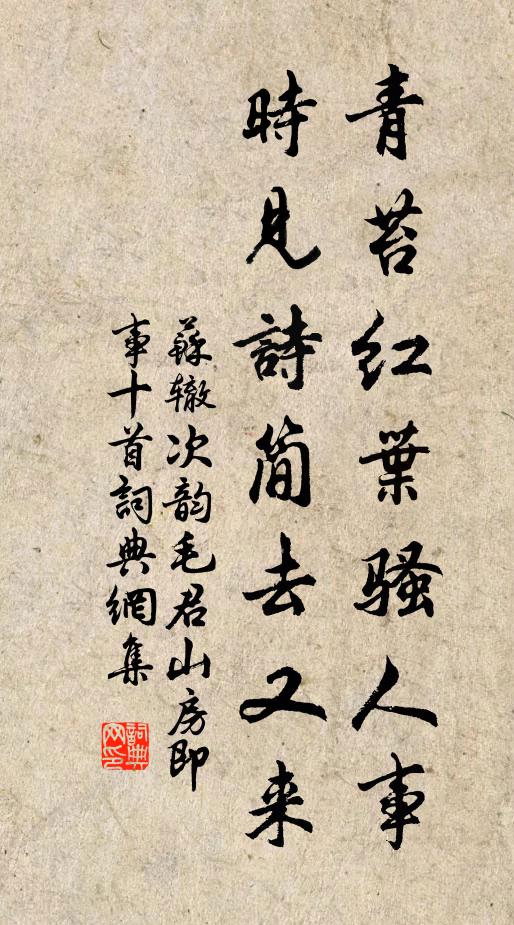 青苔红葉骚人事
時見詩简去又来
蘇辙次韵毛君山房即
事十首詞典網集
詞典
网印